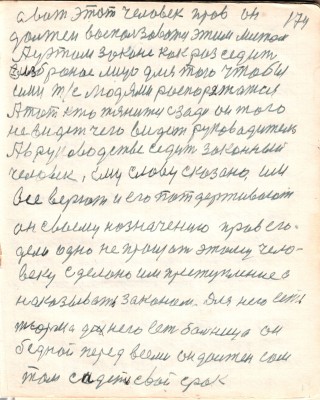 а вот этот человек прав он 174
должен воспользовать этим методом
А у этом законе как раз седит
избраное лицо для того чтобы
сими т/с людями роспоряжатся
А тот кто тянится сзади он того
не видет чего видет руководитель
А в руководстве седит законный
человек, ему слово сказано, или
все верят и его потдерживают
он своему нозначению прав его
дело одно не прощать этому чело-
веку сделано им преступление а
наказывать законом. Для него есть
тюрма для него есть больница он
бедной перед всеми он должен сам
там седеть свой срок